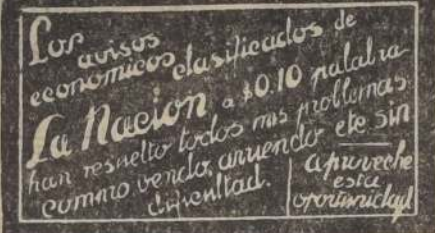 Los
avisos
económicos clasificados de
La Nación a $0.10 palabra
han resuelto todos mis problemas:
compro vendo, arriendo etc sin
dificultad.
aproveche
esta
oportunidad